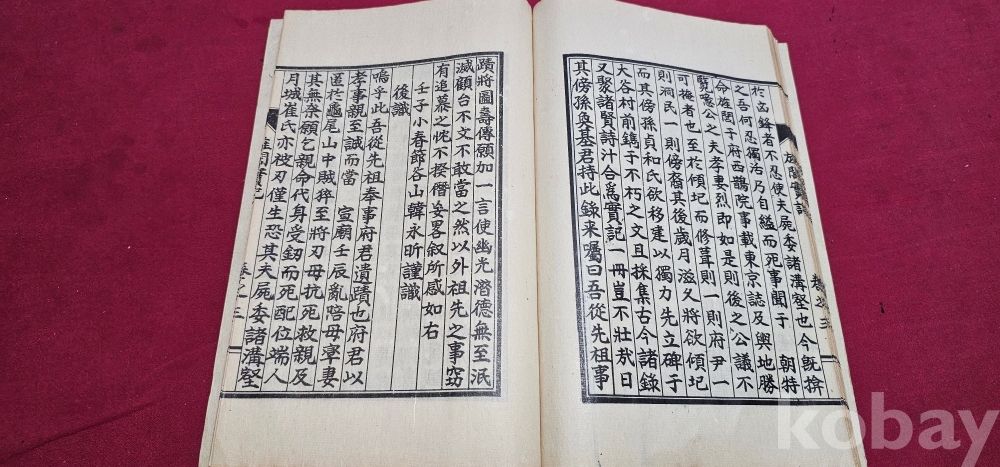 旌閭實記 卷之三
於凶鋒者不忍使夫屍委諸溝壑也今旣揜
之吾何忍獨活乃自縊而死事聞于 朝特
命旌閭于府西鵲院事載東京誌及輿地勝
覽公之夫孝妻烈即如是則後之公議不
可掩者也至於傾圮而修葺則一則府尹一
則洞民一則傍裔其後歲月滋久將欲傾圮
而其傍孫貞和氏欲移建以獨力先立碑于
大谷村前鐫于不朽之文且採集古今諸錄
又聚諸賢詩汁合爲實記一冊豈不壯哉日
其傍孫奐基君持此錄来囑曰吾從先祖事
蹟將圖壽傳願加一言使幽光潛德無至泯
滅顧台不文不敢當之然以外祖先之事窃
有追慕之忱不揆僭妄畧叙所感如右
壬子小春節谷山韓永昕謹識
後識
嗚乎此吾從先祖奉事府君遺蹟也府君以
孝事親至誠而當 宣廟壬辰亂陪母寧妻
匿於龜尾山中賊猝至將刃母抗死救親及
其無奈願乞親命代身受釰而死配位端人
月城崔氏亦被刃僅生恐其夫屍委諸溝壑
旌閭實記 卷之三
kobay